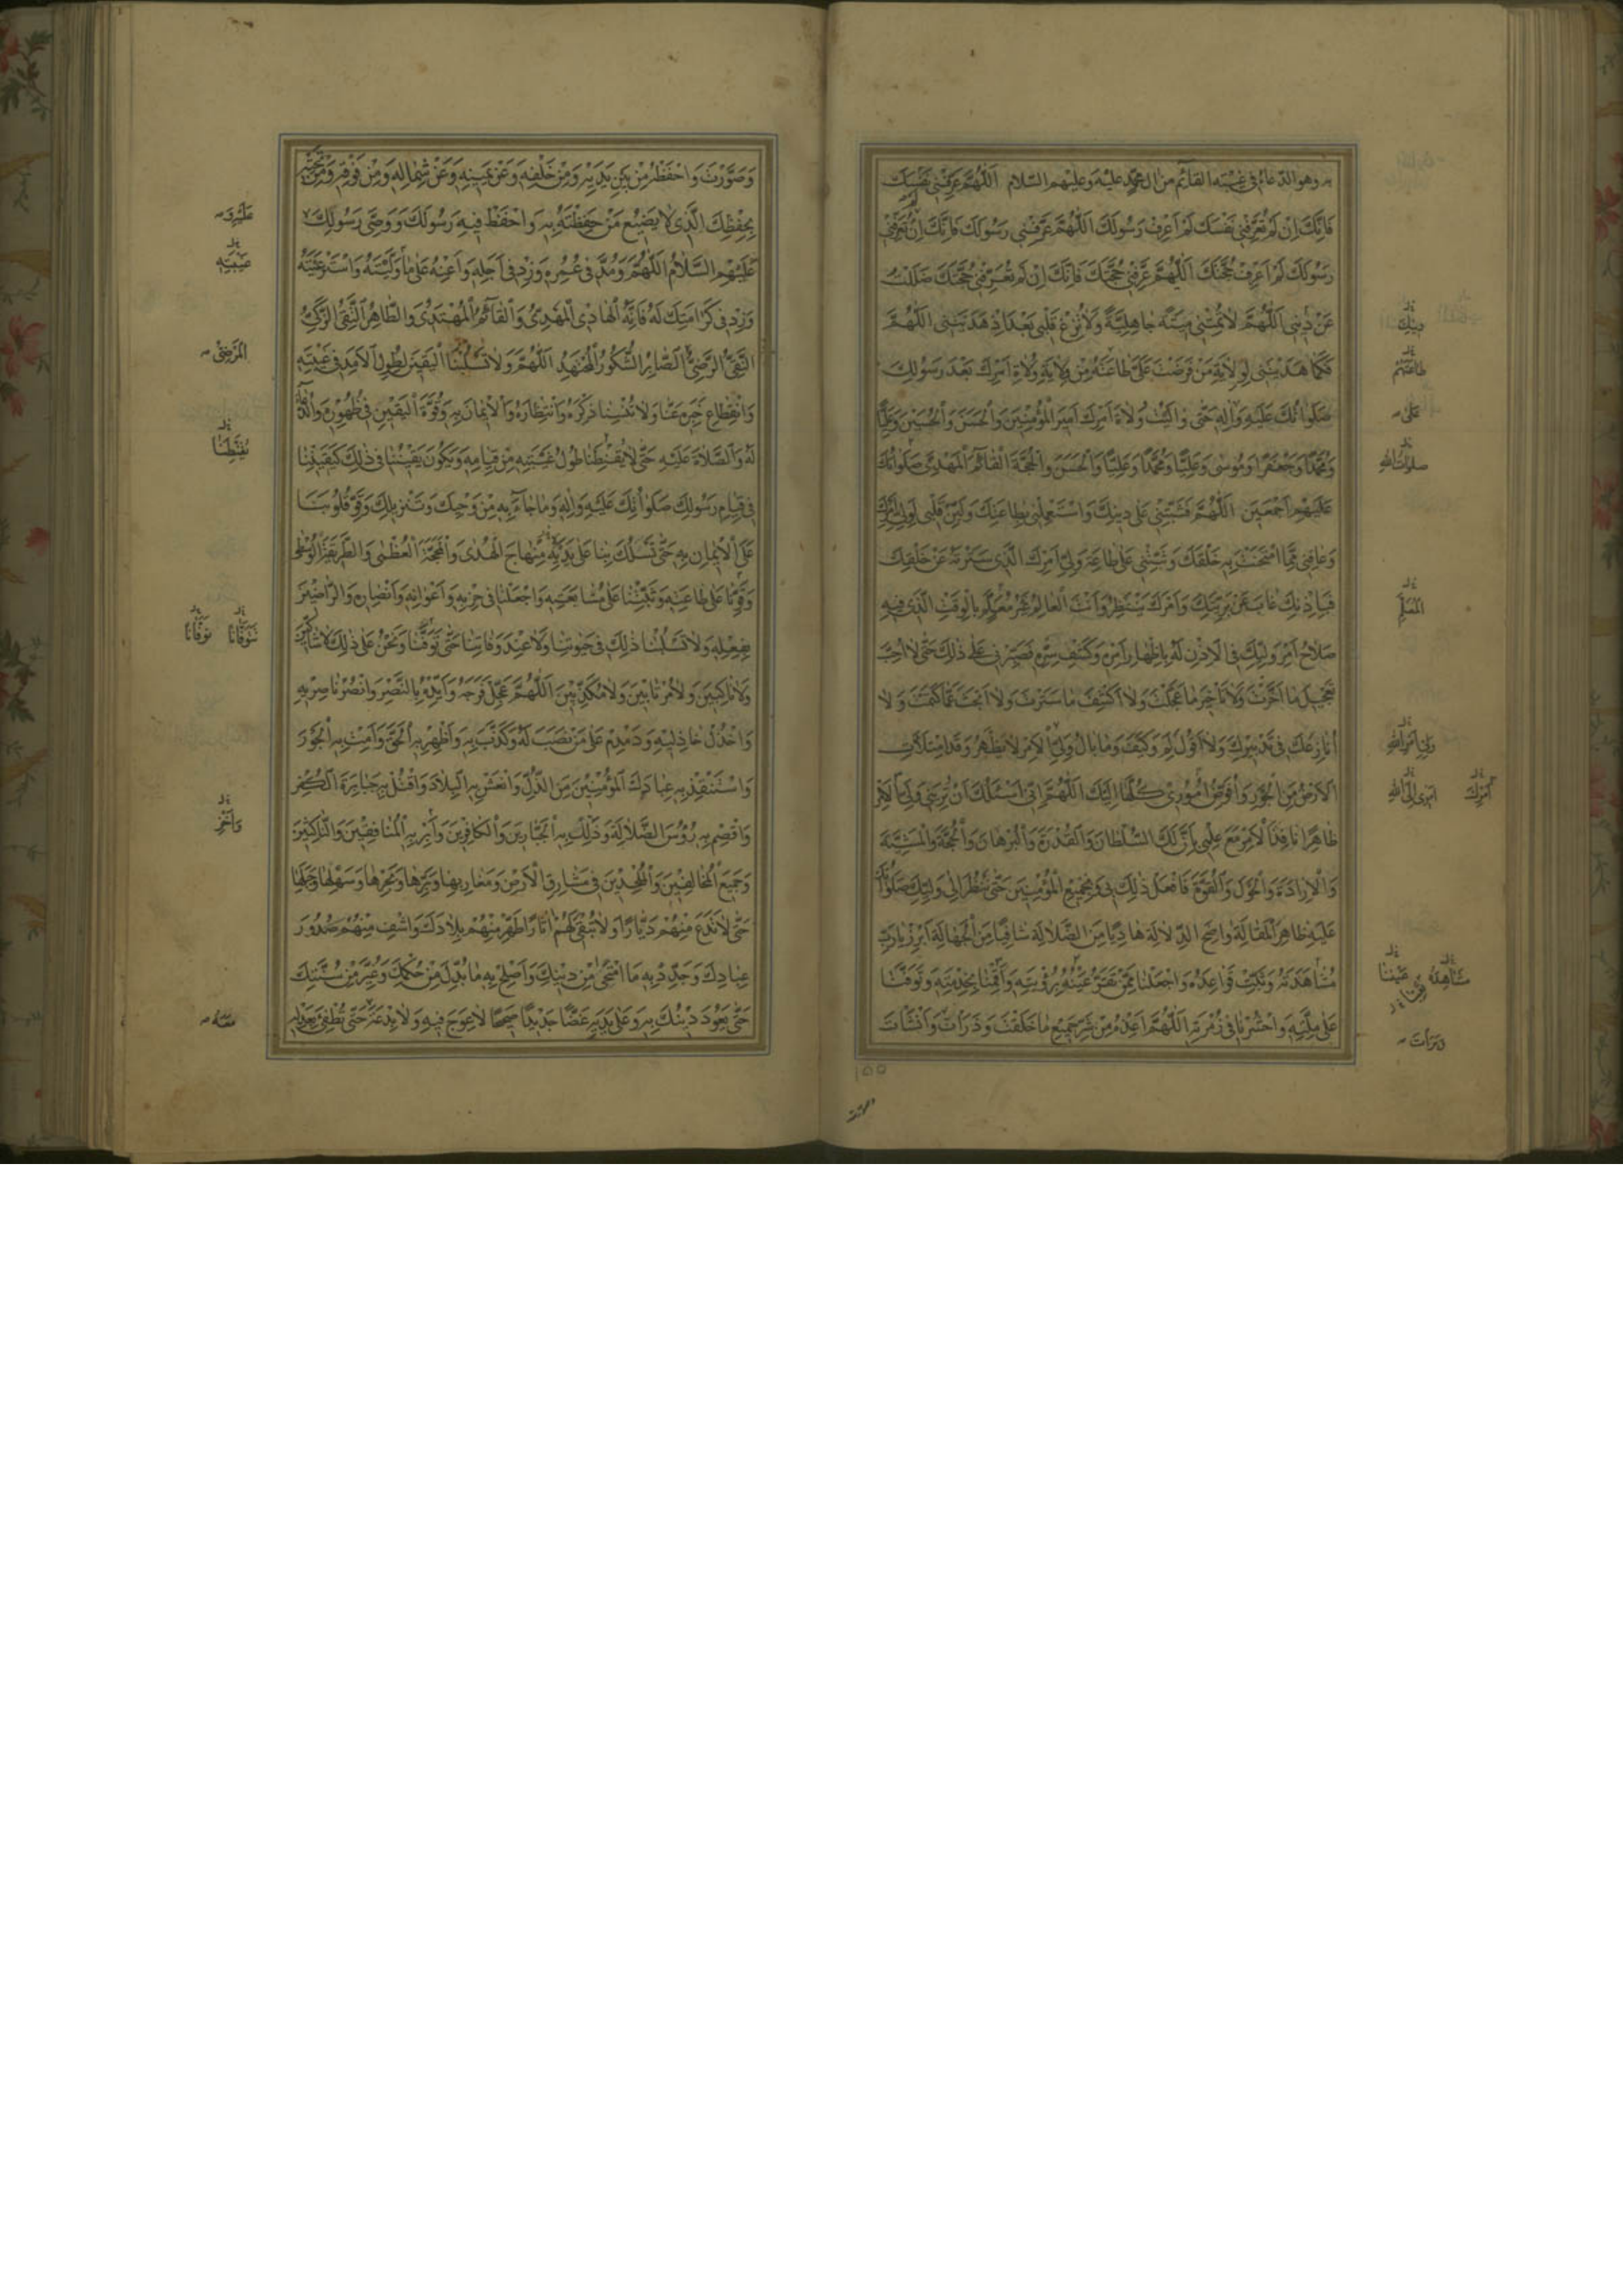 به وهو الدعاء في غيبة القائم من آل محمد عليه وعليهم السلام اَللّهُمَّ عَرِّفْنِي نَفْسَكَ
فَاِنَّكَ اِنْ لَمْ تُعَرِّفْنِي نَفْسَكَ لَمْ اَعْرِفْ رَسُولَكَ اَللّهُمَّ عَرِّفْنِي رَسُولَكَ فَاِنَّكَ اِنْ لَمْ تُعَرِّفْنِي
رَسُولَكَ لَمْ اَعْرِفْ حُجَّتَكَ اَللّهُمَّ عَرِّفْنِي حُجَّتَكَ فَاِنَّكَ اِنْ لَمْ تُعَرِّفْنِي حُجَّتَكَ ضَلَلْتُ
عَنْ دِينِي اَللّهُمَّ لا تُمِتْنِي مِيتَةً جاهِلِيَّةً وَلا تُزِغْ قَلْبِي بَعْدَ اِذْ هَدَيْتَنِي اَللّهُمَّ
فَكَما هَدَيْتَنِي لِوِلايَةِ مَنْ فَرَضْتَ عَلَيَّ طاعَتَهُ مِنْ وِلايَةِ وُلاةِ اَمْرِكَ بَعْدَ رَسُولِكَ
صَلَواتُكَ عَلَيْهِ وَآلِهِ حَتّى والَيْتُ وُلاةَ اَمْرِكَ اَمِيرَ الْمُؤْمِنِينَ وَالْحَسَنَ وَالْحُسَيْنَ وَعَلِيّاً
وَمُحَمَّداً وَجَعْفَراً وَمُوسى وَعَلِيّاً وَمُحَمَّداً وَعَلِيّاً وَالْحَسَنَ وَالْحُجَّةَ الْقائِمَ الْمَهْدِيَّ صَلَواتُكَ
عَلَيْهِمْ اَجْمَعِينَ اَللّهُمَّ فَثَبِّتْنِي عَلى دِينِكَ وَاسْتَعْمِلْنِي بِطاعَتِكَ وَلَيِّنْ قَلْبِي لِوَلِيِّ اَمْرِكَ
وَعافِنِي مِمَّا امْتَحَنْتَ بِهِ خَلْقَكَ وَثَبِّتْنِي عَلى طاعَةِ وَلِيِّ اَمْرِكَ الَّذِي سَتَرْتَهُ عَنْ خَلْقِكَ
فَبِاِذْنِكَ غابَ عَنْ بَرِيَّتِكَ وَاَمْرَكَ يَنْتَظِرُ وَاَنْتَ الْعالِمُ غَيْرُ مُعَلَّمٍ بِالْوَقْتِ الَّذِي فِيهِ
صَلاحُ اَمْرِ وَلِيِّكَ فِي الْاِذْنِ لَهُ بِاِظْهارِ اَمْرِهِ وَكَشْفِ سِتْرِهِ فَصَبِّرْنِي عَلى ذلِكَ حَتّى لا اُحِبَّ
تَعْجِيلَ ما اَخَّرْتَ وَلا تَأْخِيرَ ما عَجَّلْتَ وَلا اَكْشِفَ ما سَتَرْتَ وَلا اَبْحَثَ عَمّا كَتَمْتَ وَلا
اُنازِعَكَ فِي تَدْبِيرِكَ وَلا اَقُولَ لِمَ وَكَيْفَ وَما بالُ وَلِيِّ الْاَمْرِ لا يَظْهَرُ وَقَدِ امْتَلَأَتِ
الْاَرْضُ مِنَ الْجَوْرِ وَاُفَوِّضُ اُمُورِي كُلَّها اِلَيْكَ اَللّهُمَّ اِنِّي اَسْئَلُكَ اَنْ تُرِيَنِي وَلِيَّ الْاَمْرِ
ظاهِراً نافِذَ الْاَمْرِ مَعَ عِلْمِي بِاَنَّ لَكَ السُّلْطانَ وَالْقُدْرَةَ وَالْبُرْهانَ وَالْحُجَّةَ وَالْمَشِيَّةَ
وَالْاِرادَةَ وَالْحَوْلَ وَالْقُوَّةَ فَافْعَلْ ذلِكَ بِي وَبِجَمِيعِ الْمُؤْمِنِينَ حَتّى نَنْظُرَ اِلى وَلِيِّكَ صَلَواتُكَ
عَلَيْهِ ظاهِرَ الْمَقالَةِ واضِحَ الدَّلالَةِ هادِياً مِنَ الضَّلالَةِ شافِياً مِنَ الْجَهالَةِ اَبْرِزْ يا رَبِّ
مُشاهَدَتَهُ وَثَبِّتْ قَواعِدَهُ وَاجْعَلْنا مِمَّنْ تَقَرُّ عَيْنُهُ بِرُؤْيَتِهِ وَاَقِمْنا بِخِدْمَتِهِ وَتَوَفَّنا
عَلى مِلَّتِهِ وَاحْشُرْنا فِي زُمْرَتِهِ اَللّهُمَّ اَعِذْهُ مِنْ شَرِّ جَمِيعِ ما خَلَقْتَ وَذَرَأْتَ وَاَنْشَأْتَ
دينك
طاعتهم
على
صلوات الله
المعلم
ولي امر الله
امري الى الله
امرك
مشاهده
عيننا
وبرات
١٥٥
وَصَوَّرْتَ وَاحْفَظْهُ مِنْ بَيْنِ يَدَيْهِ وَمِنْ خَلْفِهِ وَعَنْ يَمِينِهِ وَعَنْ شِمالِهِ وَمِنْ فَوْقِهِ وَمِنْ تَحْتِهِ
بِحِفْظِكَ الَّذِي لا يَضِيعُ مَنْ حَفِظْتَهُ بِهِ وَاحْفَظْ فِيهِ رَسُولَكَ وَوَصِيَّ رَسُولِكَ
عَلَيْهِمُ السَّلامُ اَللّهُمَّ وَمُدَّ فِي عُمُرِهِ وَزِدْ فِي اَجَلِهِ وَاَعِنْهُ عَلى ما وَلَّيْتَهُ وَاسْتَرْعَيْتَهُ
وَزِدْ فِي كَرامَتِكَ لَهُ فَاِنَّهُ الْهادِي الْمَهْدِيُّ وَالْقائِمُ الْمُهْتَدِي وَالطّاهِرُ التَّقِيُّ الزَّكِيُّ
النَّقِيُّ الرَّضِيُّ الصّابِرُ الشَّكُورُ الْمُجْتَهِدُ اَللّهُمَّ وَلا تَسْلُبْنَا الْيَقِينَ لِطُولِ الْاَمَدِ فِي غَيْبَتِهِ
وَانْقِطاعِ خَبَرِهِ عَنّا وَلا تُنْسِنا ذِكْرَهُ وَانْتِظارَهُ وَالْاِيمانَ بِهِ وَقُوَّةَ الْيَقِينِ فِي ظُهُورِهِ وَالدُّعاءَ
لَهُ وَالصَّلاةَ عَلَيْهِ حَتّى لا يُقَنِّطَنا طُولُ غَيْبَتِهِ مِنْ قِيامِهِ وَيَكُونَ يَقِينُنا فِي ذلِكَ كَيَقِينِنا
فِي قِيامِ رَسُولِكَ صَلَواتُكَ عَلَيْهِ وَآلِهِ وَما جاءَ بِهِ مِنْ وَحْيِكَ وَتَنْزِيلِكَ وَقَوِّ قُلُوبَنا
عَلَى الْاِيمانِ بِهِ حَتّى تَسْلُكَ بِنا عَلى يَدَيْهِ مِنْهاجَ الْهُدى وَالْمَحَجَّةَ الْعُظْمى وَالطَّرِيقَةَ الْوُسْطى
وَقَوِّنا عَلى طاعَتِهِ وَثَبِّتْنا عَلى مُشايَعَتِهِ وَاجْعَلْنا فِي حِزْبِهِ وَاَعْوانِهِ وَاَنْصارِهِ وَالرّاضِينَ
بِفِعْلِهِ وَلا تَسْلُبْنا ذلِكَ فِي حَيوتِنا وَلا عِنْدَ وَفاتِنا حَتّى تَوَفَّنا وَنَحْنُ عَلى ذلِكَ لا شاكِّينَ
وَلا ناكِبِينَ وَلا مُرْتابِينَ وَلا مُكَذِّبِينَ اَللّهُمَّ عَجِّلْ فَرَجَهُ وَاَيِّدْهُ بِالنَّصْرِ وَانْصُرْ ناصِرِيهِ
وَاخْذُلْ خاذِلِيهِ وَدَمْدِمْ عَلى مَنْ نَصَبَ لَهُ وَكَذَّبَ بِهِ وَاَظْهِرْ بِهِ الْحَقَّ وَاَمِتْ بِهِ الْجَوْرَ
وَاسْتَنْقِذْ بِهِ عِبادَكَ الْمُؤْمِنِينَ مِنَ الذُّلِّ وَانْعَشْ بِهِ الْبِلادَ وَاقْتُلْ بِهِ جَبابِرَةَ الْكُفْرِ
وَاقْصِمْ بِهِ رُؤُسَ الضَّلالَةِ وَذَلِّلْ بِهِ الْجَبّارِينَ وَالْكافِرِينَ وَاَبِرْ بِهِ الْمُنافِقِينَ وَالنّاكِثِينَ
وَجَمِيعَ الْمُخالِفِينَ وَالْمُلْحِدِينَ فِي مَشارِقِ الْاَرْضِ وَمَغارِبِها وَبَرِّها وَبَحْرِها وَسَهْلِها وَجَبَلِها
حَتّى لا تَدَعَ مِنْهُمْ دَيّاراً وَلا تُبْقِيَ لَهُمْ آثاراً طَهِّرْ مِنْهُمْ بِلادَكَ وَاشْفِ مِنْهُمْ صُدُورَ
عِبادِكَ وَجَدِّدْ بِهِ مَا امْتَحى مِنْ دِينِكَ وَاَصْلِحْ بِهِ ما بُدِّلَ مِنْ حُكْمِكَ وَغُيِّرَ مِنْ سُنَّتِكَ
حَتّى يَعُودَ دِينُكَ بِهِ وَعَلى يَدَيْهِ غَضّاً جَدِيداً صَحِيحاً لا عِوَجَ فِيهِ وَلا بِدْعَةَ حَتّى تُطْفِئَ بِعَدْلِهِ
غيبته
المرضي
يقنطنا
تتوفانا
توفانا
معه